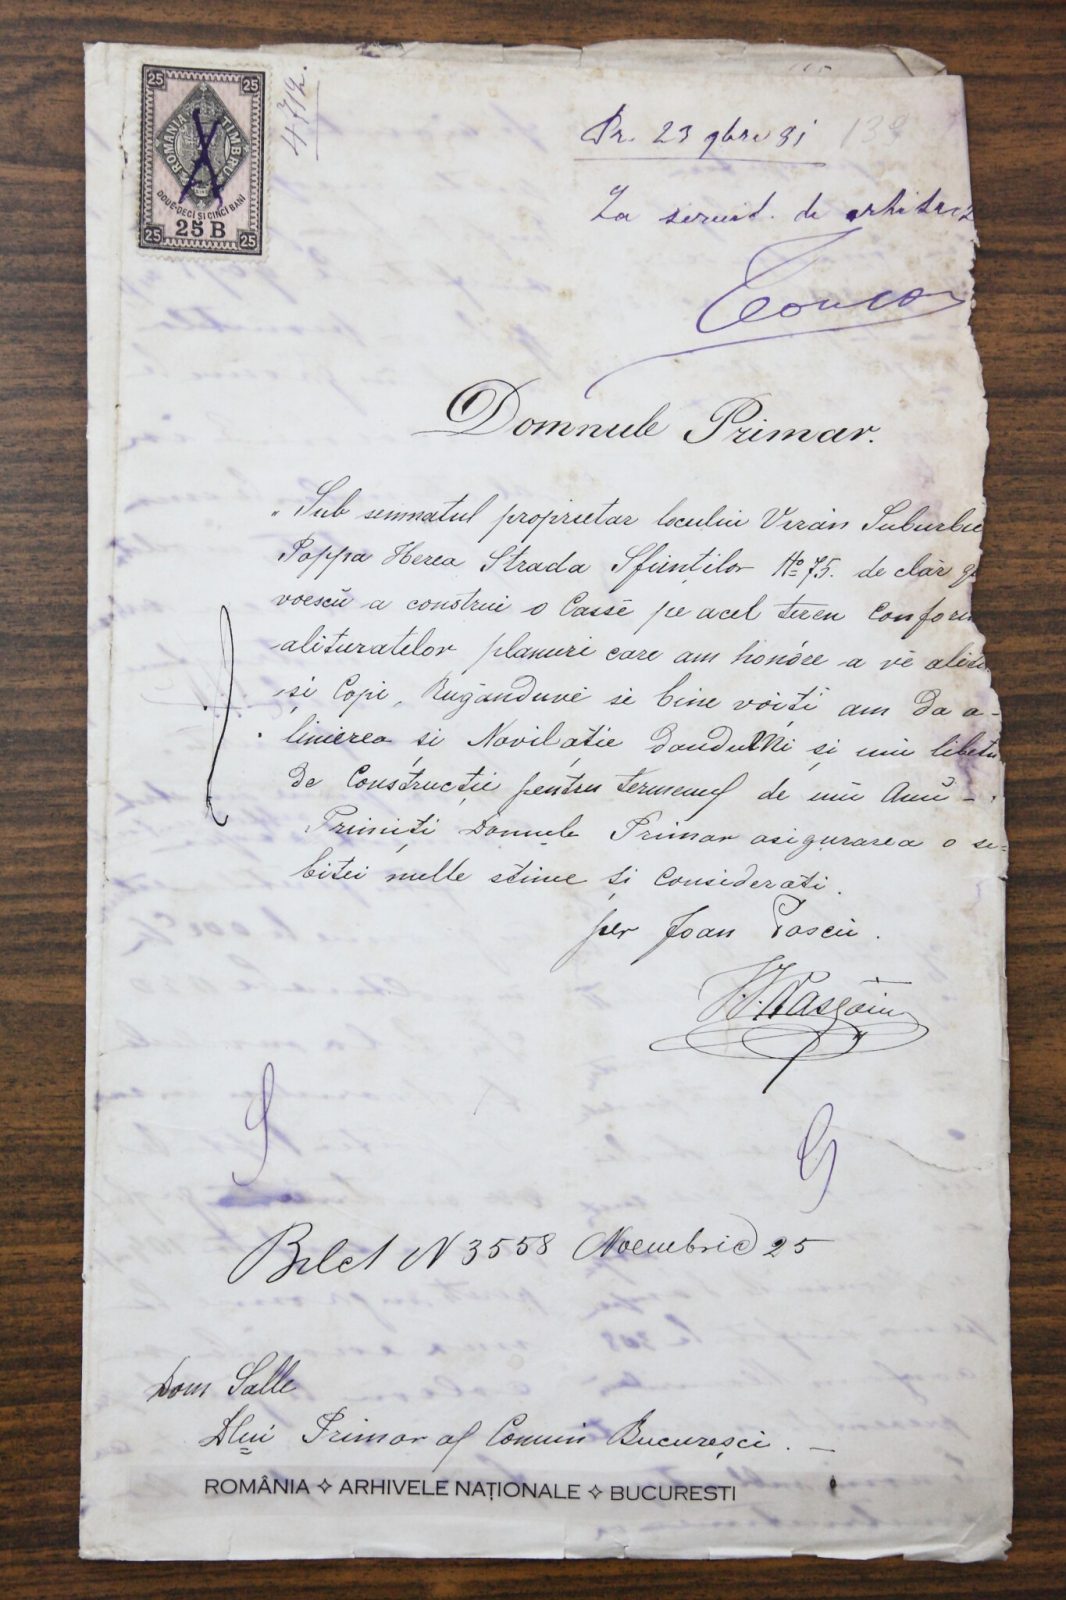 25 25
ROMANIA TIMBRU
DOUE-DECI SI CINCI BANI
25 B
25 25
4712.
Pr. 23 9bre 81
139
La serviciul de arhitec
Domnule Primar.
Sub semnatul proprietar locului Viran Suburbie
Poppa Herea Strada Sfinților No 75. de clar
voescŭ a construi o Cassĕ pe acel teren Conform
alituratelor planuri care am honóre a vĕ alit
și Copi, Rugănduvĕ se bine voiți am Da a-
linierea și Navilație Dandumi și un libetu
De Construcție pentru termenul de unŭ Anŭ -
Primiți Domnule Primar asigurarea o se=
bitei melle stime și Considerati.
per Joan Pascu.
Bilet N 3558 Noembrie 25
Dom Salle
Dlui Primar al Comun Bucuresci. -
ROMÂNIA ✧ ARHIVELE NAȚIONALE ✧ BUCURESTI